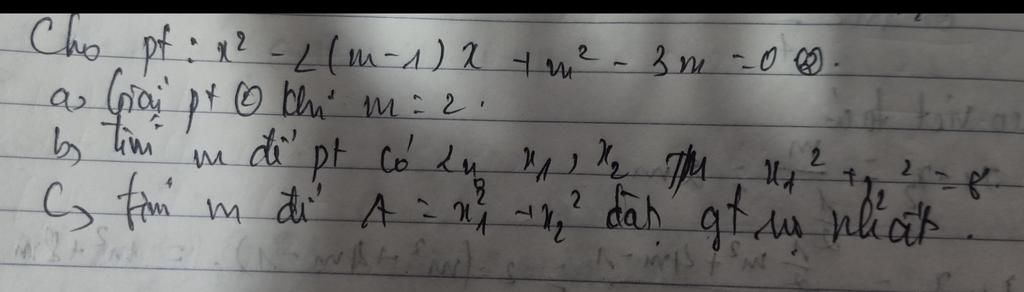 Cho pt: x² - 2(m-1)x + m² - 3m = 0 ②.
a, Giải pt ② khi m = 2.
b, tìm m để pt có 2n x₁, x₂ TM x₁² + x₂² = 8.
C, tìm m để A = x₁² + x₂² đạt gt nhất.